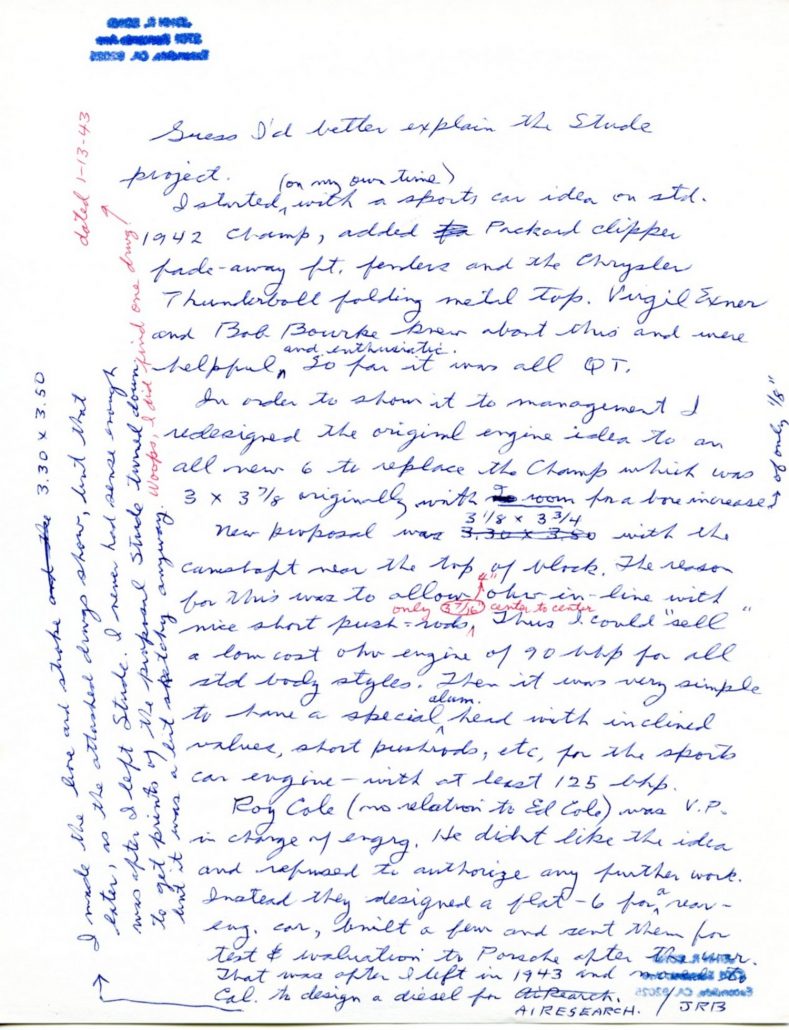 JOHN R. BOND
Escondido, CA. 92025
Guess I'd better explain the Stude
project.
(on my own time)
I started, with a sports car idea on std.
1942 Champ, added Packard clipper
fade-away ft. fenders and the Chrysler
Thunderbolt folding metal top. Virgil Exner
and Bob Bourke knew about this and were
and enthusiastic.
helpful, So far it was all QT.
In order to show it to management I
redesigned the original engine idea to an
all new 6 to replace the Champ which was
3 x 3 7/8 originally with room for a bore increase of only 1/8"
3 1/8 x 3 3/4
New proposal was 3.30 x 3.80 with the
camshaft near the top of block. The reason
for this was to allow ohv-in-line with
4"
only 3 7/16" center to center
nice short push-rods. Thus I could "sell"
a low cost ohv engine of 90 bhp for all
std body styles. Then it was very simple
alum.
to have a special head with inclined
valves, short pushrods, etc, for the sports
car engine - with at least 125 bhp.
Roy Cole (no relation to Ed Cole) was V.P.
in charge of engrg. He didn't like the idea
and refused to authorize any further work.
Instead they designed a flat-6 for a rear-
eng. car, built a few and sent them for
test & evaluation to Porsche after the war.
That was after I left in 1943 and to
Cal. to design a diesel for AiResearch.
AIRESEARCH. / JRB
I made the bore and stroke and the 3.30 x 3.50
later, as the attached drwgs show, but that
was after I left Stude. I never had sense enough
to get prints of the proposal Stude turned down,
but it was a bit sketchy anyway. Woops, I did find one drwg!
dated 1-13-43